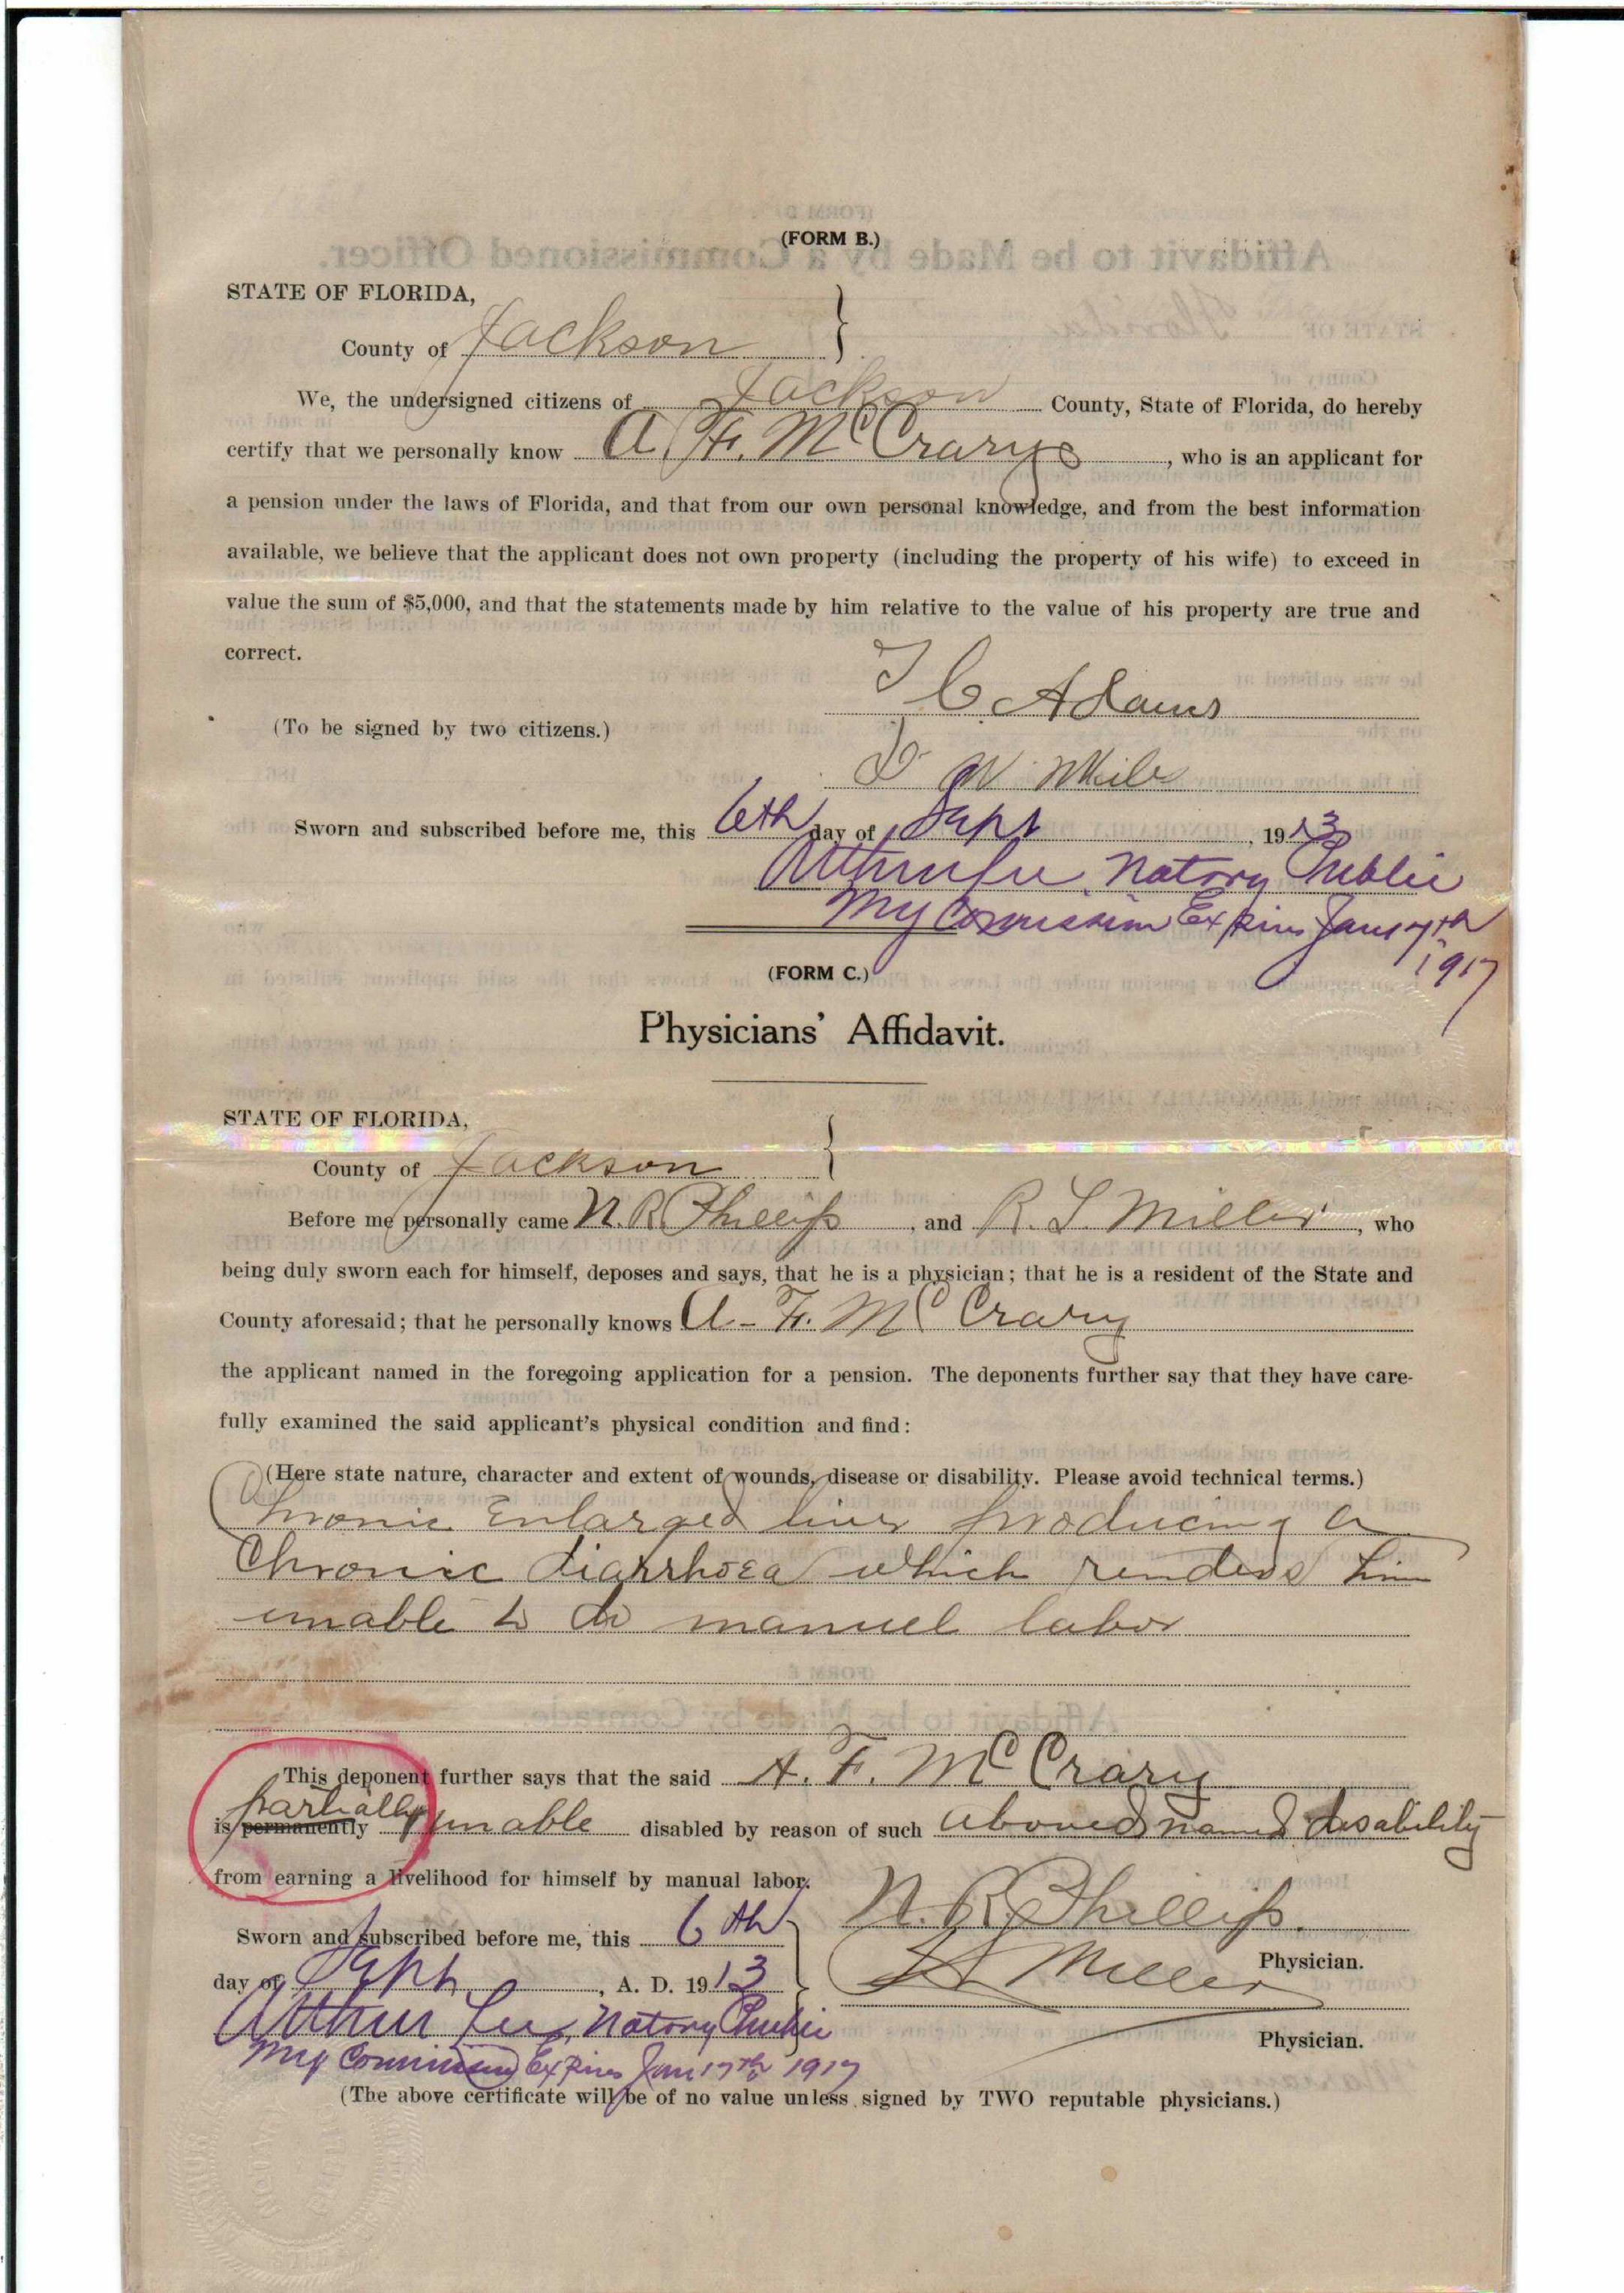 (FORM B.)
STATE OF FLORIDA,
County of Jackson }
We, the undersigned citizens of Jackson County, State of Florida, do hereby
certify that we personally know A. F. McCrary, who is an applicant for
a pension under the laws of Florida, and that from our own personal knowledge, and from the best information
available, we believe that the applicant does not own property (including the property of his wife) to exceed in
value the sum of $5,000, and that the statements made by him relative to the value of his property are true and
correct.
C Adams
(To be signed by two citizens.)
W
Sworn and subscribed before me, this 6th day of Sept, 1913
Arthur Lee Notory Public
My Commission Expires Jany
1917
(FORM C.)
Physicians' Affidavit.
STATE OF FLORIDA,
County of Jackson }
Before me personally came N. R. Phillips, and R. L. Miller, who
being duly sworn each for himself, deposes and says, that he is a physician; that he is a resident of the State and
County aforesaid; that he personally knows A. F. McCrary
the applicant named in the foregoing application for a pension. The deponents further say that they have care-
fully examined the said applicant's physical condition and find:
(Here state nature, character and extent of wounds, disease or disability. Please avoid technical terms.)
Chronic Enlarged liver producing a
Chronic diarrhoea which renders him
unable to do manuel labor
This deponent further says that the said A. F. McCrary
partially
is permanently unable disabled by reason of such above named disability
from earning a livelihood for himself by manual labor.
Sworn and subscribed before me, this 6th
N. R. Phillips.
Physician.
day of Sept, A. D. 1913
Miller
Arthur Lee, Notory Public
Physician.
My Commission Expires Jan 17th 1917
(The above certificate will be of no value unless signed by TWO reputable physicians.)